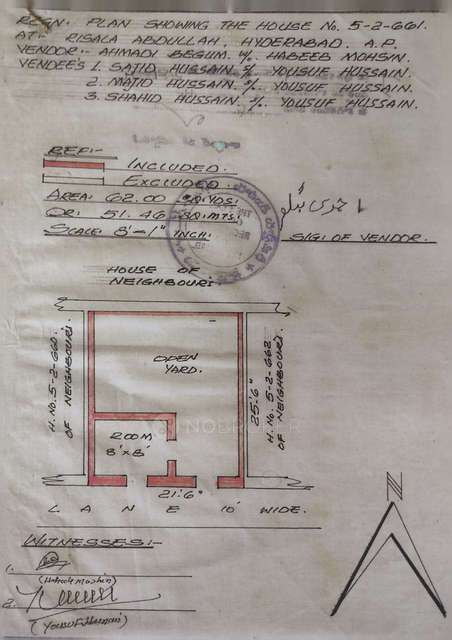 REGN: PLAN SHOWING THE HOUSE No. 5-2-661.
AT:- RISALA ABDULLAH, HYDERABAD. A.P.
VENDOR:- AHMADI BEGUM. W/. HABEEB MOHSIN.
VENDEE'S 1. SAJID HUSSAIN. S/. YOUSUF HUSSAIN.
2. MAJID HUSSAIN. S/. YOUSUF HUSSAIN.
3. SHAHID HUSSAIN. S/. YOUSUF HUSSAIN.
REF:-
INCLUDED.
EXCLUDED.
AREA: 62.00 SQ.YDS.
OR: 51.46 SQ.MTS.
SCALE: 8'-1" INCH.
SIG: OF VENDOR.
HOUSE OF
NEIGHBOUR:
H. No. 5-2-660.
OF NEIGHBOUR:
OPEN
YARD.
25'.6"
H. No. 5-2-662.
OF NEIGHBOUR:
ROOM
8'x8'
21'.6"
LANE 10' WIDE.
N
WITNESSES:-
1.
(Habeeb Mohsin)
2.
(Yousuf Hussain)